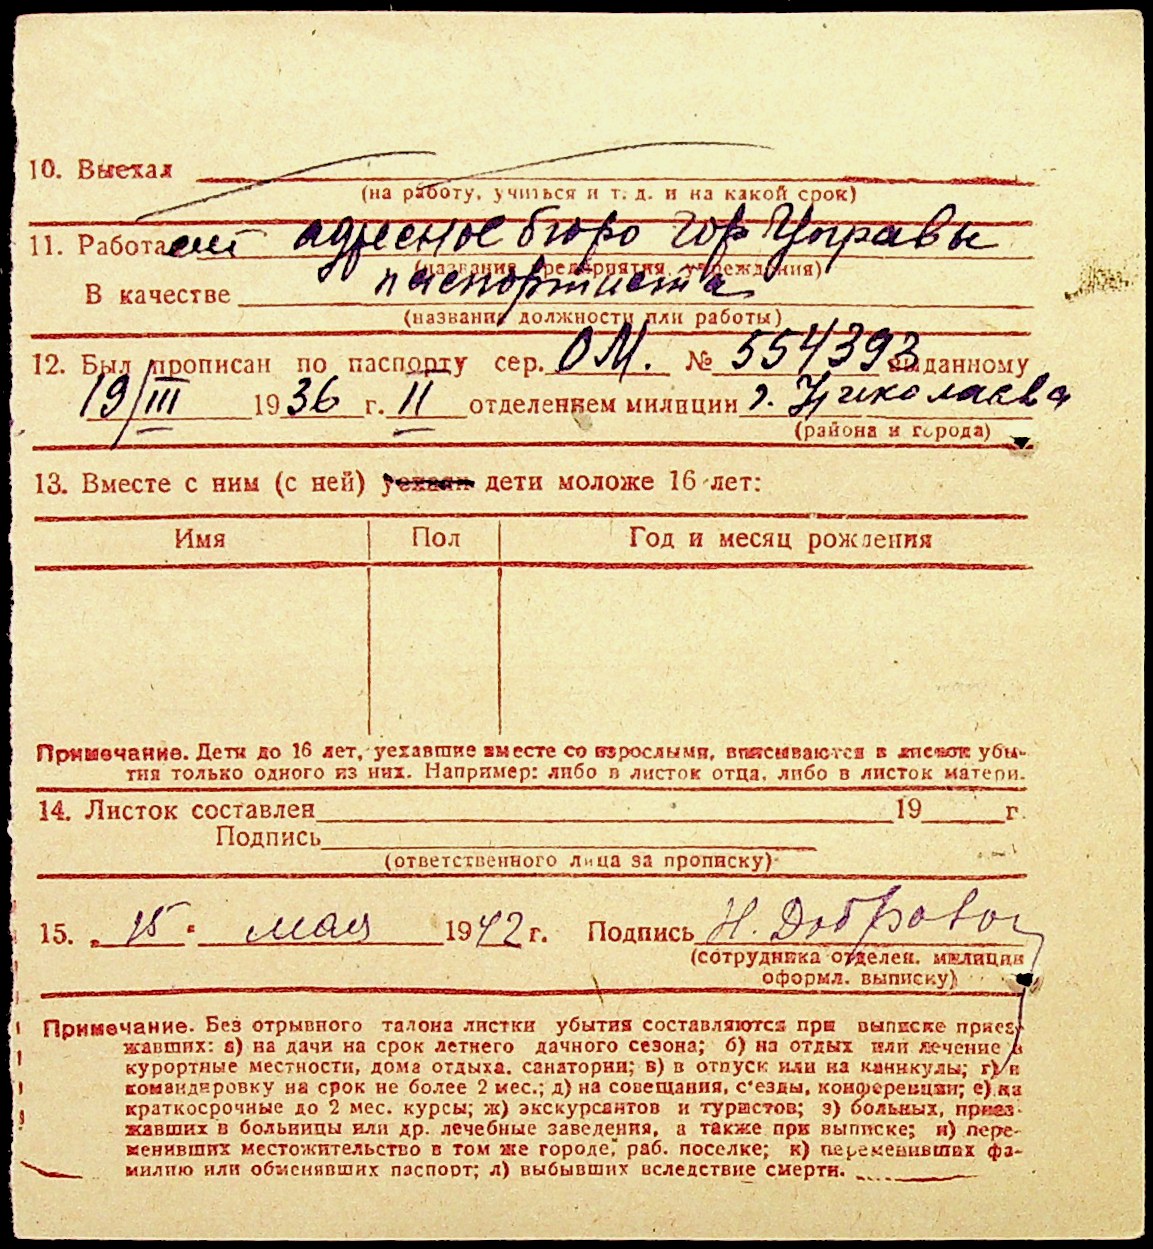 10. Выехал
(на работу, учиться и т. д. и на какой срок)
11. Работает адресное бюро гор Управы
(название предприятия, учреждения)
В качестве паспортиста
(название должности или работы)
12. Был прописан по паспорту сер. ОМ. № 554393 выданному
19/III 1936 г. II отделением милиции г. Николаева
(района и города)
13. Вместе с ним (с ней) уехали дети моложе 16 лет:
Имя Пол Год и месяц рождения
Примечание. Дети до 16 лет, уехавшие вместе со взрослыми, вписываются в листок убы-
тия только одного из них. Например: либо в листок отца, либо в листок матери.
14. Листок составлен 19 г.
Подпись
(ответственного лица за прописку)
15. „15“ мая 1942 г. Подпись Н. Добровол
(сотрудника отделен. милиции
оформл. выписку)
Примечание. Без отрывного талона листки убытия составляются при выписке приез-
жавших: а) на дачи на срок летнего дачного сезона; б) на отдых или лечение в
курортные местности, дома отдыха, санатории; в) в отпуск или на каникулы; г) в
командировку на срок не более 2 мес.; д) на совещания, с'езды, конференции; е) на
краткосрочные до 2 мес. курсы; ж) экскурсантов и туристов; з) больных, приез-
жавших в больницы или др. лечебные заведения, а также при выписке; и) пере-
менивших местожительство в том же городе, раб. поселке; к) переменивших фа-
милию или обменявших паспорт; л) выбывших вследствие смерти.